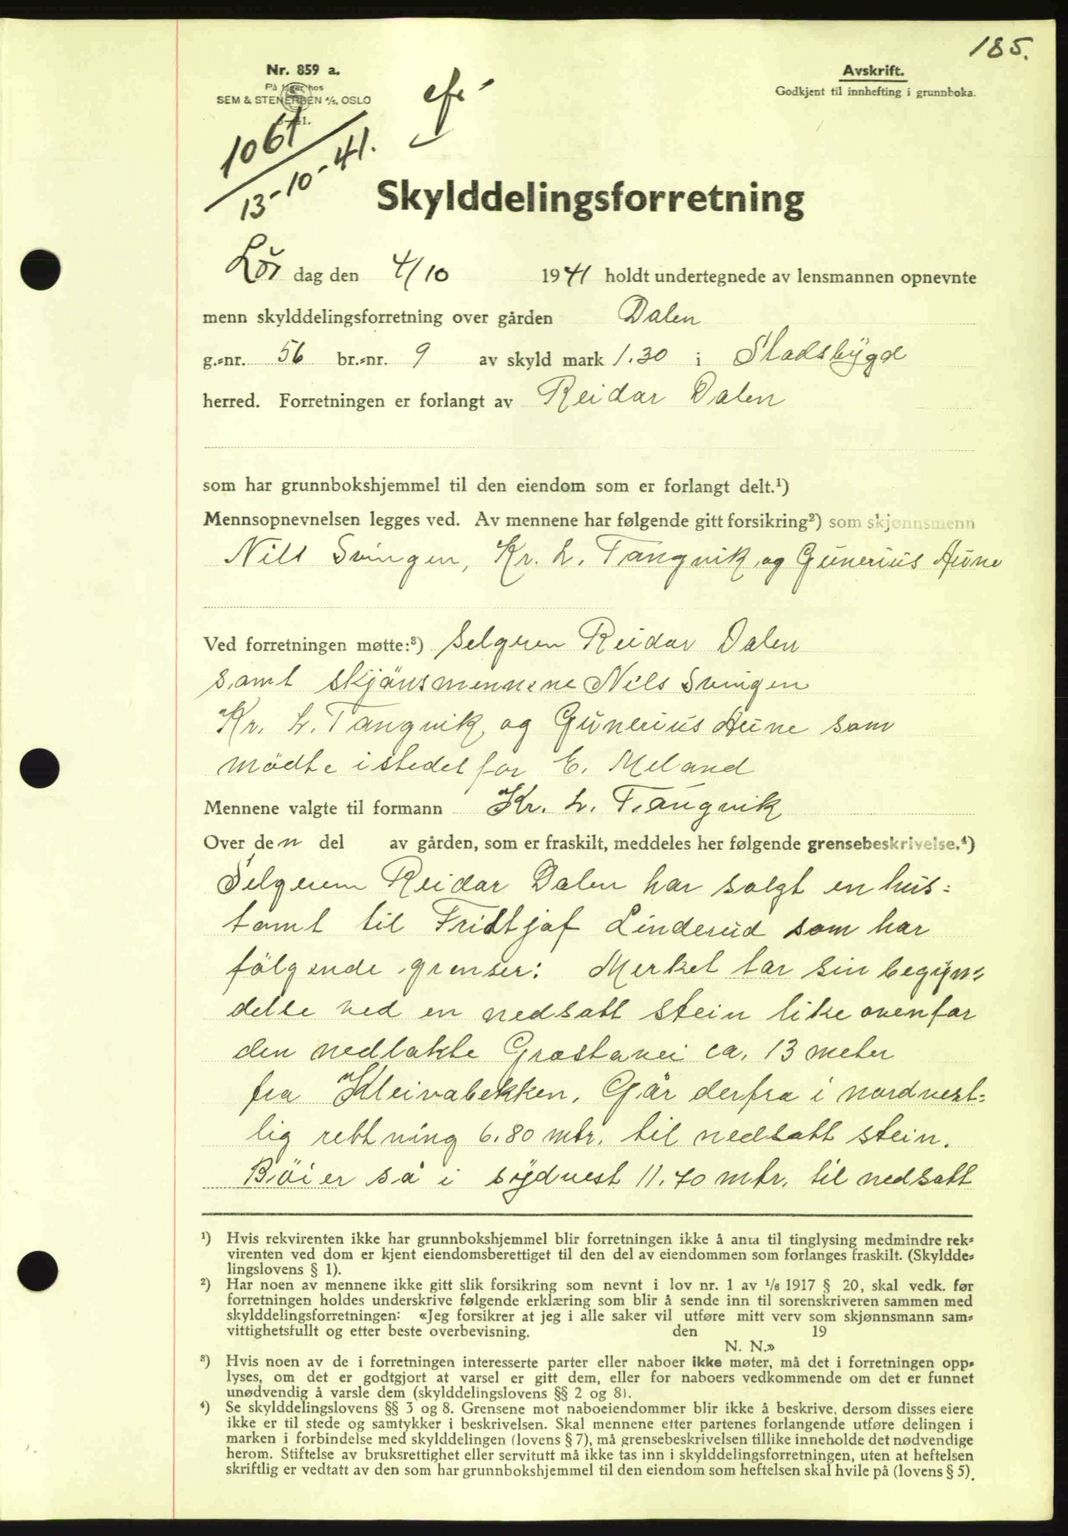 185.
Nr. 859 a.
På lager hos
SEM & STENERSEN A/S, OSLO
Avskrift.
Godkjent til innhefting i grunnboka.
1061
13-10-41.
Skylddelingsforretning
Lør dag den 4/10 1941 holdt undertegnede av lensmannen opnevnte
menn skylddelingsforretning over gården Dalen
g.-nr. 56 br.-nr. 9 av skyld mark 1.30 i Stadsbygd
herred. Forretningen er forlangt av Reidar Dalen
som har grunnbokshjemmel til den eiendom som er forlangt delt.¹)
Mennsopnevnelsen legges ved. Av mennene har følgende gitt forsikring²) som skjønnsmenn
Nils Svingen, Kr. L. Tangvik og Gunerius Aune
Ved forretningen møtte:³) Selgeren Reidar Dalen
samt skjönsmennene Nils Svingen
Kr. L. Tangvik og Gunerius Aune som
mödte istedet for E. Meland
Mennene valgte til formann Kr. L. Tangvik
Over den del av gården, som er fraskilt, meddeles her følgende grensebeskrivelse.⁴)
Selgeren Reidar Dalen har solgt en hus-
tomt til Fridtjof Linderud som har
fölgende grenser: Merket tar sin begyn-
delse ved en nedsatt stein like ovenfor
den nedlakte Grostavei ca. 13 meter
fra Kleivabekken. Går derfra i nordvest-
lig rettning 6.80 mtr. til nedsatt stein.
Böier så i sydvest 11.70 mtr. til nedsatt
¹) Hvis rekvirenten ikke har grunnbokshjemmel blir forretningen ikke å anta til tinglysing medmindre rek-
virenten ved dom er kjent eiendomsberettiget til den del av eiendommen som forlanges fraskilt. (Skyldde-
lingslovens § 1).
²) Har noen av mennene ikke gitt slik forsikring som nevnt i lov nr. 1 av 1/8 1917 § 20, skal vedk. før
forretningen holdes underskrive følgende erklæring som blir å sende inn til sorenskriveren sammen med
skylddelingsforretningen: «Jeg forsikrer at jeg i alle saker vil utføre mitt verv som skjønnsmann sam-
vittighetsfullt og etter beste overbevisning. den 19
N. N.»
³) Hvis noen av de i forretningen interesserte parter eller naboer ikke møter, må det i forretningen opp-
lyses, om det er godtgjort at varsel er gitt dem, eller for naboers vedkommende om det er funnet
unødvendig å varsle dem (skylddelingslovens §§ 2 og 8).
⁴) Se skylddelingslovens §§ 3 og 8. Grensene mot naboeiendommer blir ikke å beskrive, dersom disses eiere
ikke er til stede og samtykker i beskrivelsen. Skal mennene etter partenes forlangende utføre delingen i
marken i forbindelse med skylddelingen (lovens § 7), må grensebeskrivelsen tillike inneholde det nødvendige
herom. Stiftelse av bruksrettighet eller servitutt må ikke tas inn i skylddelingsforretningen, uten at heftelsen
skriftlig er vedtatt av den som har grunnbokshjemmel til den eiendom som heftelsen skal hvile på (lovens § 5).